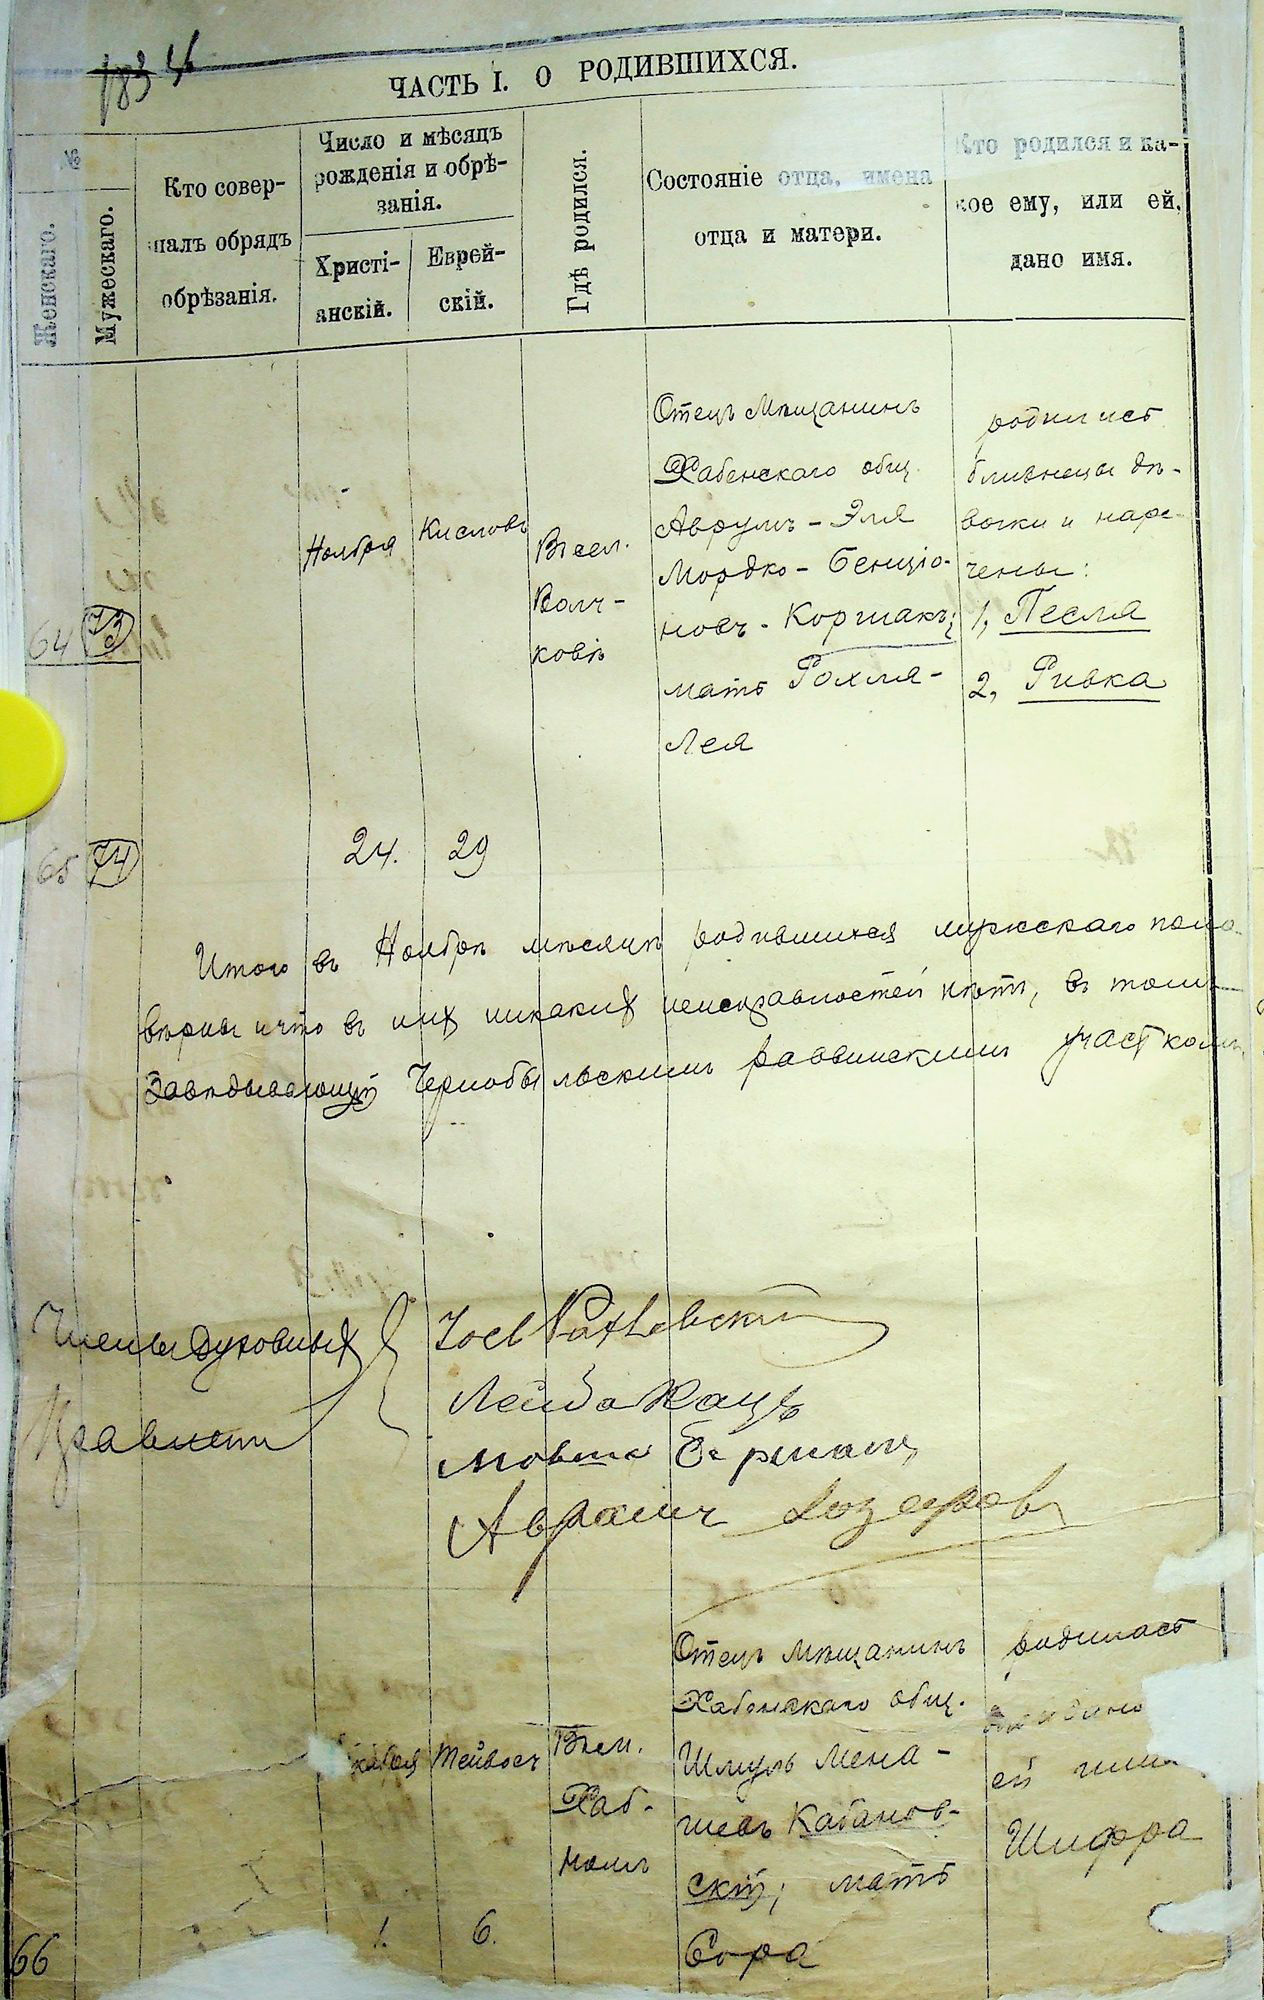 ЧАСТЬ I. О РОДИВШИХСЯ.
№
Женскаго.
Мужескаго.
Кто совер-
шалъ обрядъ
обрѣзанія.
Число и мѣсяцъ
рожденія и обрѣ-
занія.
Христі-
анскій.
Еврей-
скій.
Гдѣ родился.
Состояніе отца, имена
отца и матери.
Кто родился и ка-
кое ему, или ей,
дано имя.
64
73
65
74
Ноября
24.
Кислевъ
29
Въ сел.
Волч-
ковѣ
Отецъ мѣщанинъ
Хабенскаго общ.
Аврумъ-Эля
Мордко-Бенціо-
новъ-Коршакъ;
мать Рохля-
Лея
родились
близнецы дѣ-
вочки и наре-
чены:
1, Песля
2, Ривка
Итого въ Ноябрѣ мѣсяцѣ родившихся мужескаго пола
вѣрны и что въ них никаких неисправностей нѣтъ, въ томъ
Завѣдывающій Чернобыльскимъ раввинскимъ участкомъ
Члены Духовных
Правленій
Лейба Кацъ
Мовша Берман
Аврамъ
66
кабря
1.
Тейвесъ
6.
Въ м.
Хаб-
номъ
Отецъ мѣщанинъ
Хабенскаго общ.
Шмуль Мена-
шевъ Кабанов-
скій; мать
Сора
родилась
ей имя
Шифра